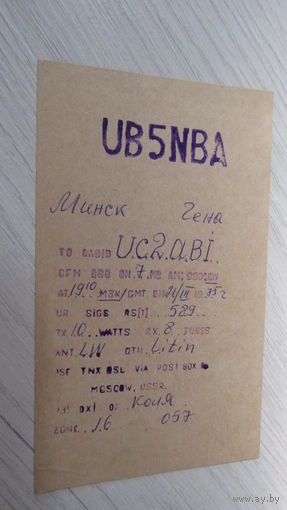 UB5NBA
Минск Гена
TO RADIO UC2ABI
CFM QSO ON 7 MC AM, SSB, CW
AT 1910 MSK/GMT ON 21/IX 1975г
UR SIGS RS(T) 589
TX 10 WATTS RX 8 TUBES
ANT LW QTH Litin
PSE TNX QSL VIA POST BOX 88
MOSCOW, USSR.
73! DX! OP Коля
ZONE 16 057
ay.by